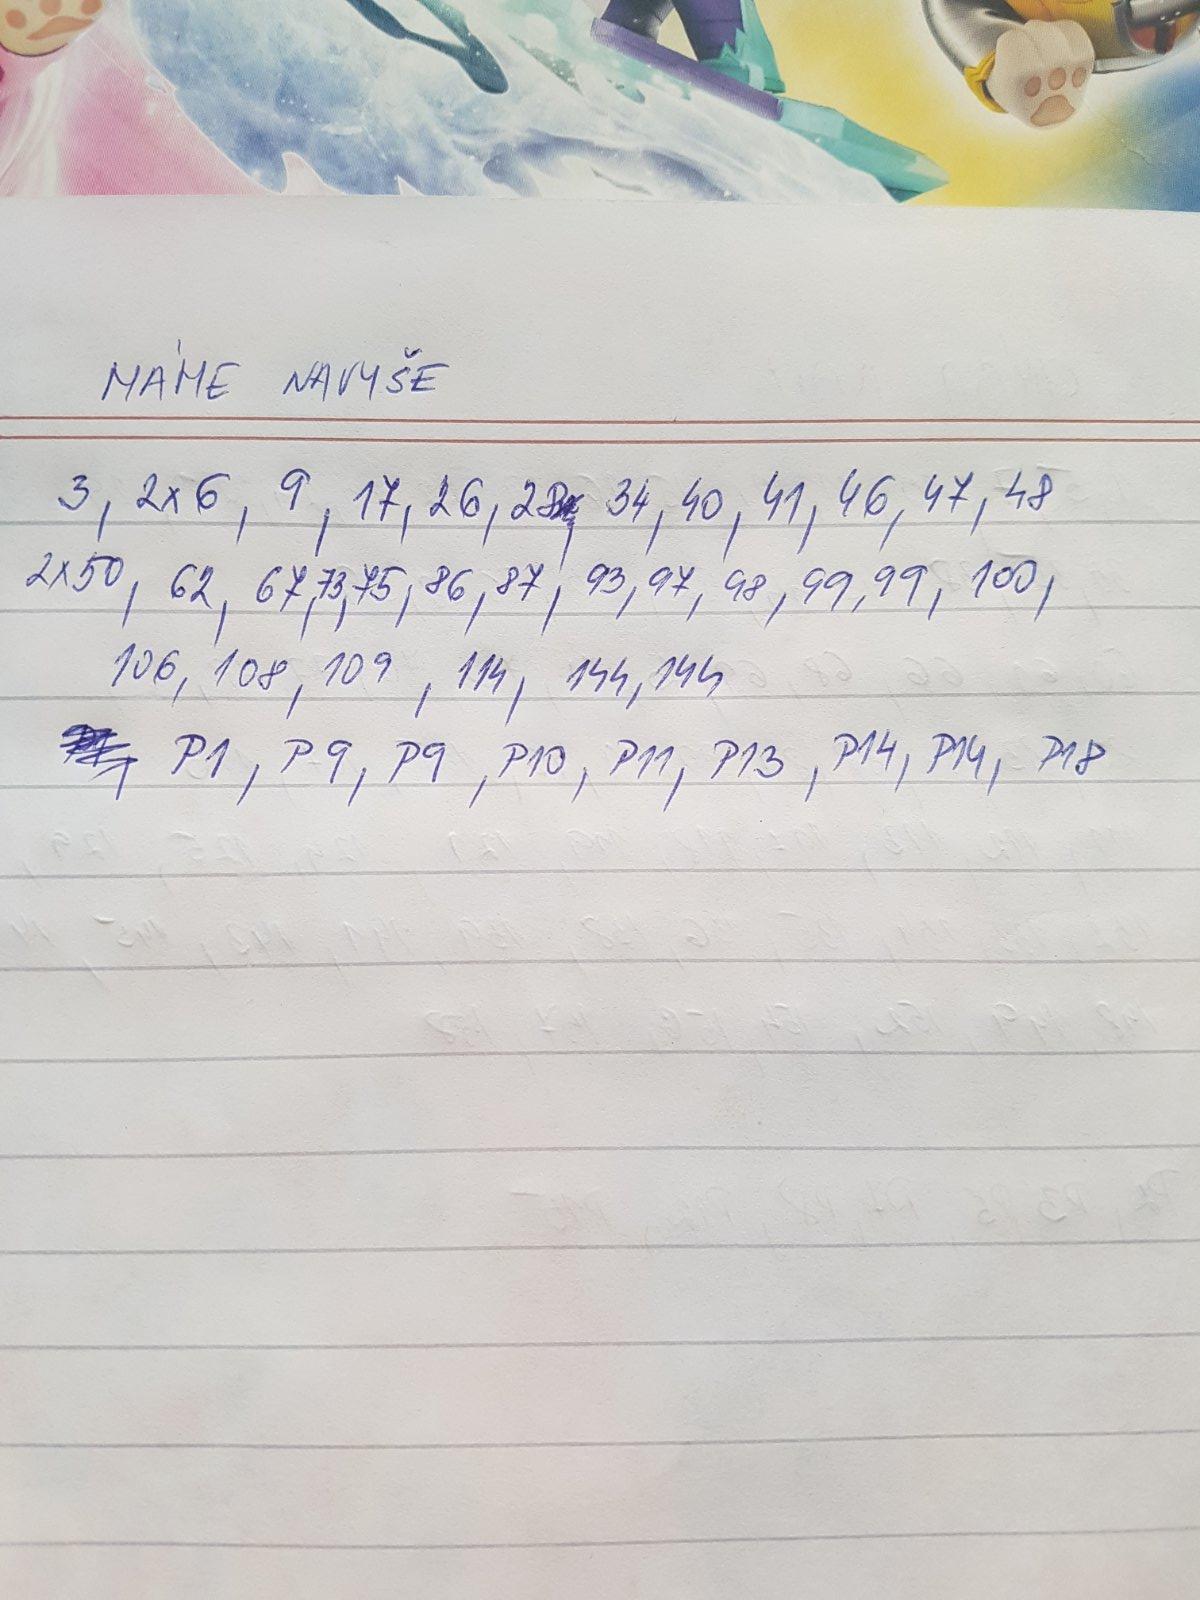 MÁME NAVYŠE
3, 2x6, 9, 17, 26, 28, 34, 40, 41, 46, 47, 48
2x50, 62, 67, 73, 75, 86, 87, 93, 97, 98, 99, 99, 100,
106, 108, 109, 114, 144, 144
, P1, P9, P9, P10, P11, P13, P14, P14, P18